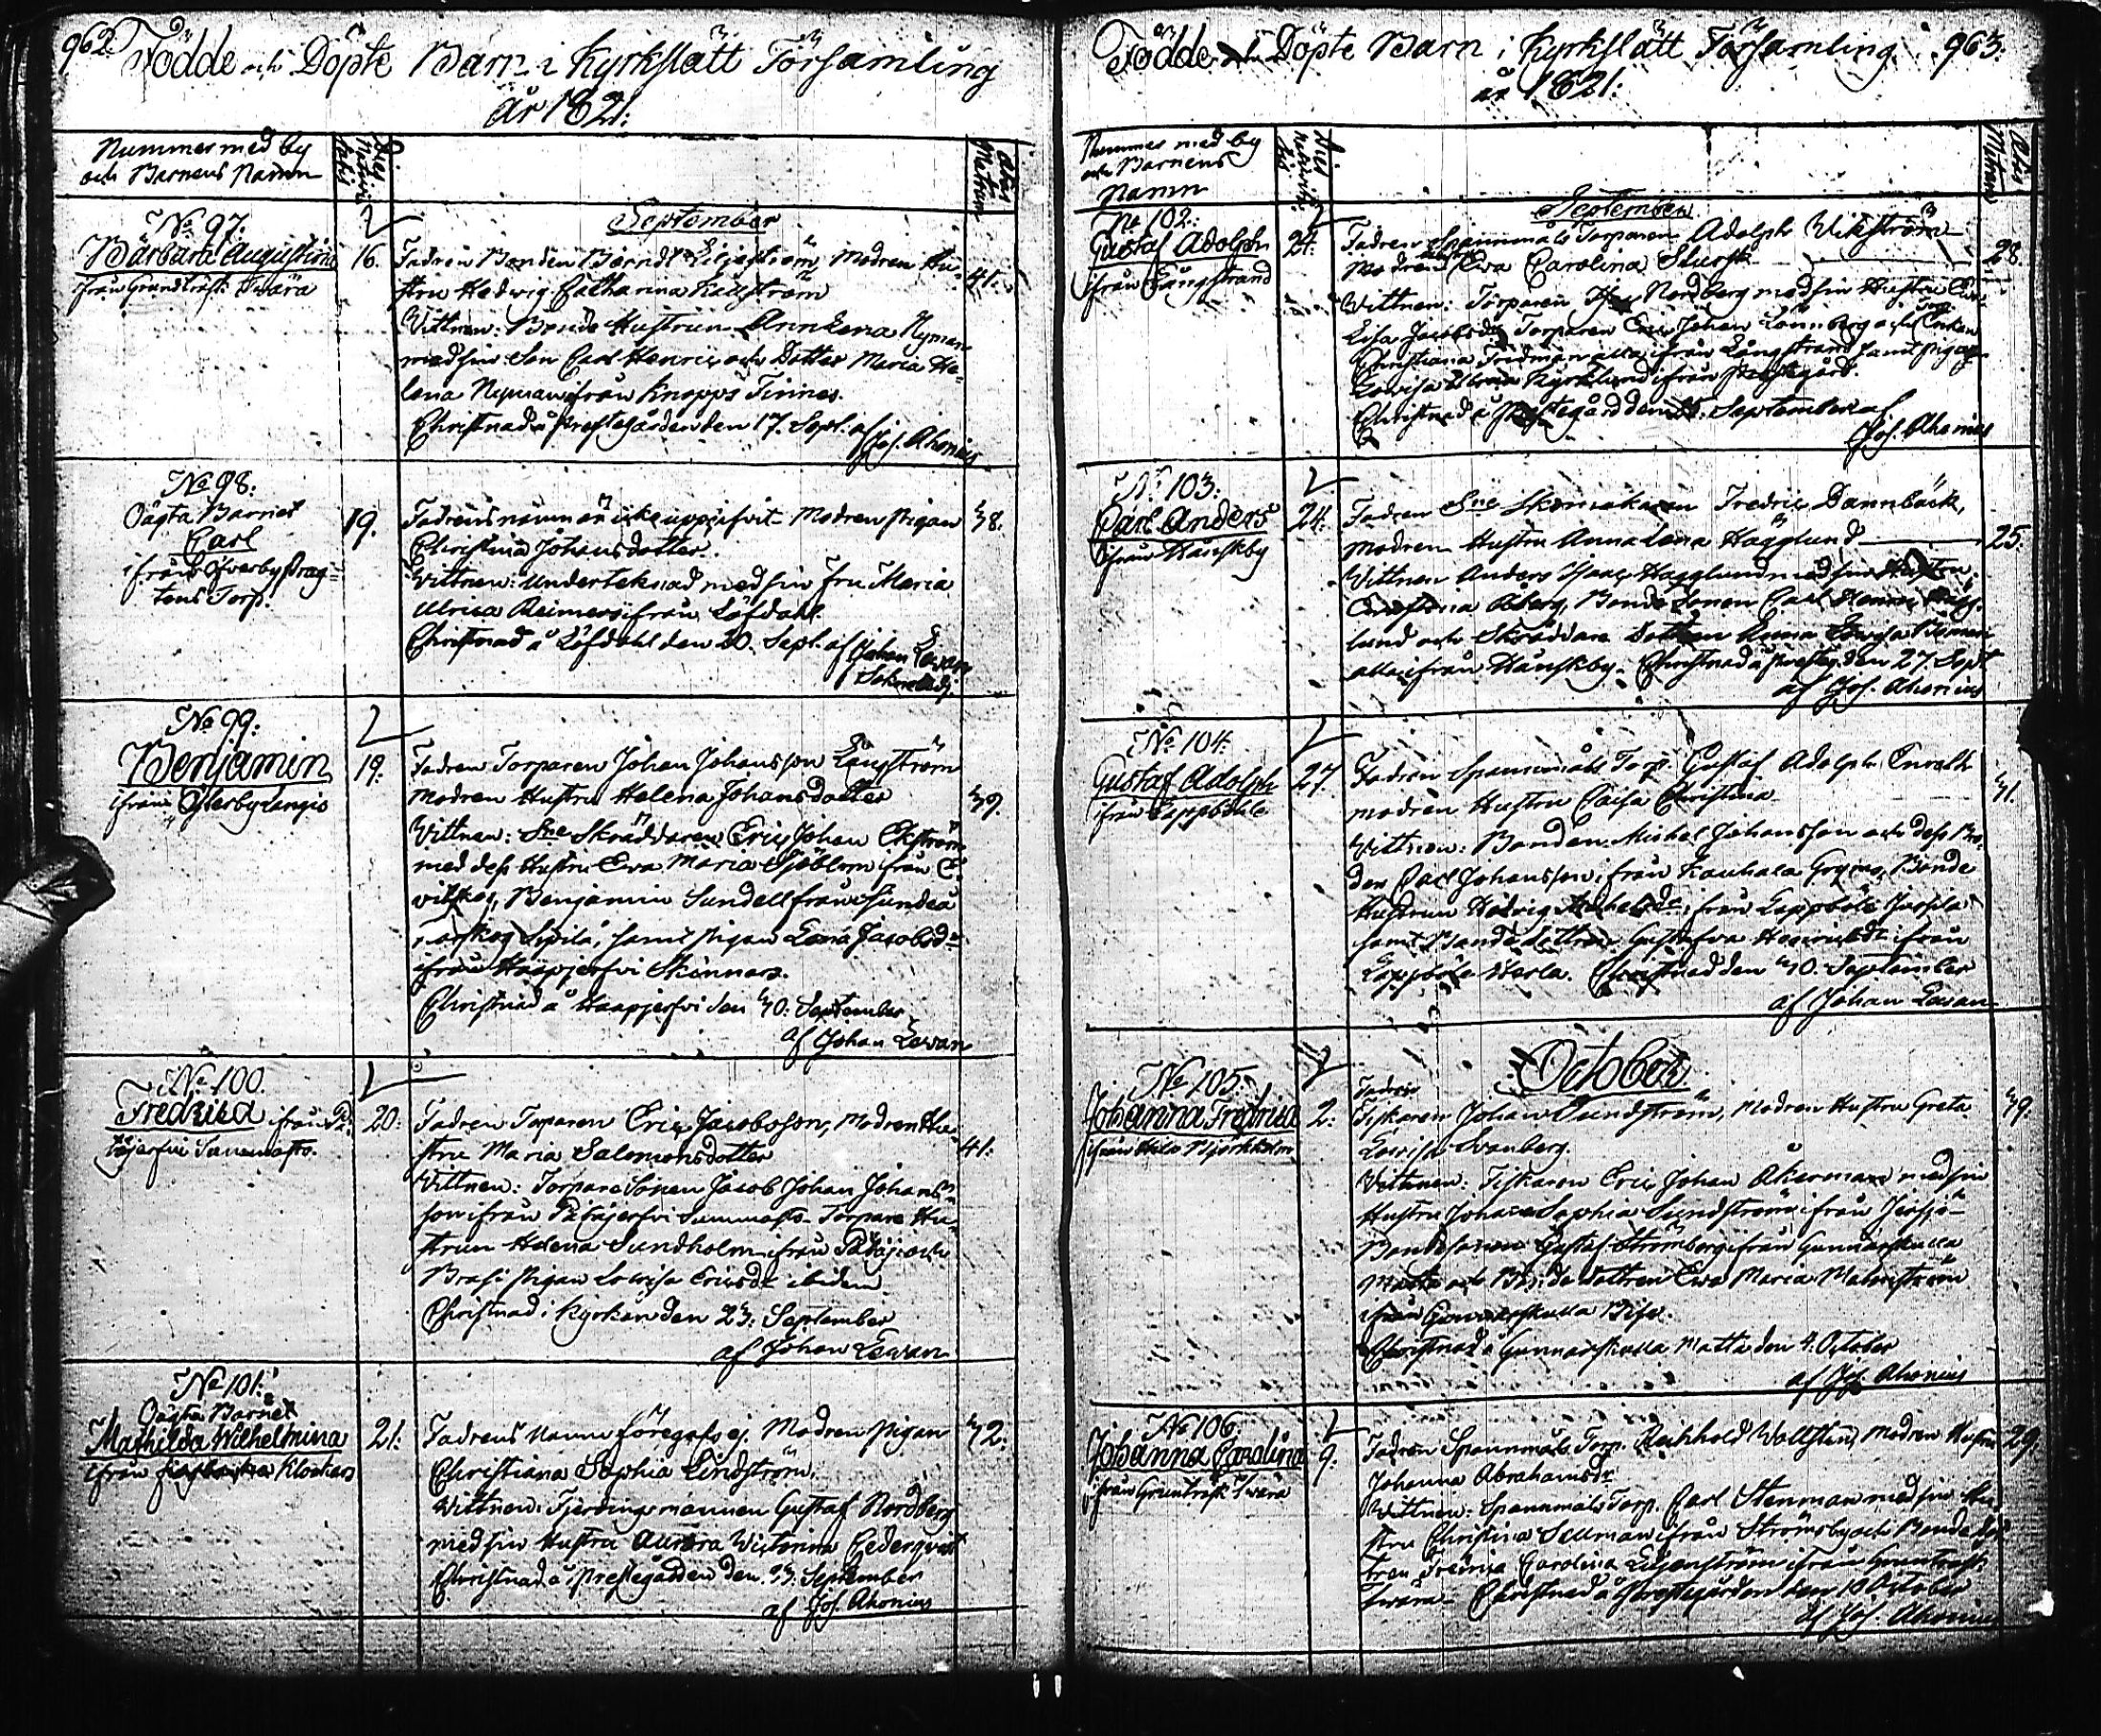 962.
Födde och Döpte Barn i Kyrkslätt Församling
År 1821:
Nummer med by
och Barnens Namn
Dies Nativitatis
Ætas Matrum
September
No 97.
Barbara Augustina
ifrån Grundträsk Swära
16.
Fadren Bonden Berndt Liljeström, Modren Hu-
stru Hedwig Catharina Kullström
41.
Wittnen: Bonde Hustrun Annlena Nyman
med sin Son Carl Henric och Dotter Maria He-
lena Nyman ifrån Knopps Finnes.
Christnad å Prestegården den 17. Sept. af Jos. Ahonius
No 98:
Oägta Barnet
Carl
ifrån Öfverby
tens Torp.
19.
Fadrens namn är icke uppgifvit Modren Pigan
38.
Christina Johansdotter.
Wittnen: Underteknad med sin Fru Maria
Ulrica Reimers ifrån Löfdahl.
Christnad å Löfdahl den 20. Sept. af Johan Lewan
No 99:
Benjamin
ifrån Österby Langis
19.
Fadren Torparen Johan Johansson Långström
Modren Hustru Helena Johansdotter
39.
Wittnen: Skräddaren Eric Johan Ekström
med dess Hustru Ewa Maria Sjöblom från E-
vitskog, Benjamin Sundell från Sundeå
samt Pigan Lena Jacobsdr
ifrån Haapjerfvi Skinnars.
Christnad å Haapjerfvi den 30. September
af Johan Lewan
No 100.
Fredrica ifrån På-
täjerfvi
20.
Fadren Torparen Eric Jacobsson, Modren Hu-
stru Maria Salomonsdotter
41.
Wittnen: Torpare Sonen Jacob Johan Johans-
son ifrån Torpare Hu-
strun Helena Sundholm ifrån och
Pigan Lowisa Ericsdr ibidem
Christnad i Kyrkan den 23. September
af Johan Lewan
No 101.
Oägta Barnet
Mathilda Wilhelmina
ifrån Klockars
21.
Fadrens Namn föregafs ej. Modren Pigan
32.
Christiana Sophia Lindström.
Wittnen: Fjerdingsmannen Gustaf Nordberg
med sin Hustru Aurora Wictorina Cederqvist
Christnad å Prestegården den 23. September
af Jos. Ahonius
Födde och Döpte Barn i Kyrkslätt Församling 963.
år 1821:
Nummer med by
och Barnens
Namn
Dies Nativitatis
Ætas Matrum
September
No 102.
Gustaf Adolph
ifrån Långstrand
24.
Fadren Spannmåls Torparen Adolph Wikström
Modren Hustru Ewa Carolina Slursk
28.
Wittnen: Torparen Nordberg med sin Hustru
Lisa Jacobsdr Torparen Eric Johan Lönnberg och Enkan
Christiana Fridman alla ifrån Långstrand samt Pigan
Lovisa Kyrklund ifrån Prestgård.
Christnad å Prestegård den September af
Jos. Ahonius
No 103:
Carl Anders
ifrån Hånskby
24.
Fadren Skomakaren Fredric Dannbäck,
Modren Hustru Anna Lena Hägglund
25.
Wittnen Anders Isaac Hägglund med sin Hustru
Christina Åberg, Bonde Sonen Carl Henric Hägg-
lund och Skräddare Dottren Anna Lowisa
alla ifrån Hånskby. Christnad å Presteg. den 27. Sept
af Jos. Ahonius
No 104.
Gustaf Adolph
ifrån Lappböle
27.
Fadren Spannmåls Torp. Gustaf Adolph Enroth
Modren Hustru Caisa Christina
31.
Wittnen: Bonden Michel Johansson och dess Bro-
der Carl Johansson ifrån Kauhala Bonde
Hustrun Hedvig ifrån Lappböle
samt Bonde Dottren Gustafva Henricsdr ifrån
Lappböle Herla. Christnad den 30. September
af Johan Lewan
October
No 105.
Johanna Fredrica
ifrån Björkholm
2.
Fadren
Fiskaren Johan Sundström, Modren Hustru Greta
39.
Lowisa Svanberg.
Wittnen: Fiskaren Eric Johan Åkerman med sin
Hustru Johanna Sophia Sundström ifrån
Bondesonen Gustaf Strömberg ifrån Gunnarskulla
Matta och Bonde Dottren Ewa Maria Malmström
ifrån Gunnarskulla
Christnad å Gunnarskulla Matta den 4. October
af Jos. Ahonius
No 106.
Johanna Carolina
ifrån Gruntresk Swära
9.
Fadren Spannmåls Torp. Reinhold Wallsten, Modren Hustru
29.
Johanna Abrahamsdr
Wittnen: Spannmåls Torp. Carl Stenman med sin Hu-
stru Christina Sellman ifrån Strömsby och Bonde Dot-
tren Fredrica Carolina Liljeström ifrån Gruntresk
Swära. Christnad å Prestegården den 10 October
af Jos. Ahonius